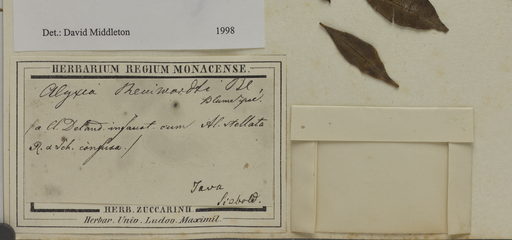 Det.: David Middleton 1998
HERBARIUM REGIUM MONACENSE.
Alyxia Reinwardti Bl,
Blume ipse!
(a Cl. Decand. infaust. cum Al. stellata
R. & Sch. confusa.)
Java
Siebold.
HERB. ZUCCARINII
Herbar. Univ. Ludov. Maximil.